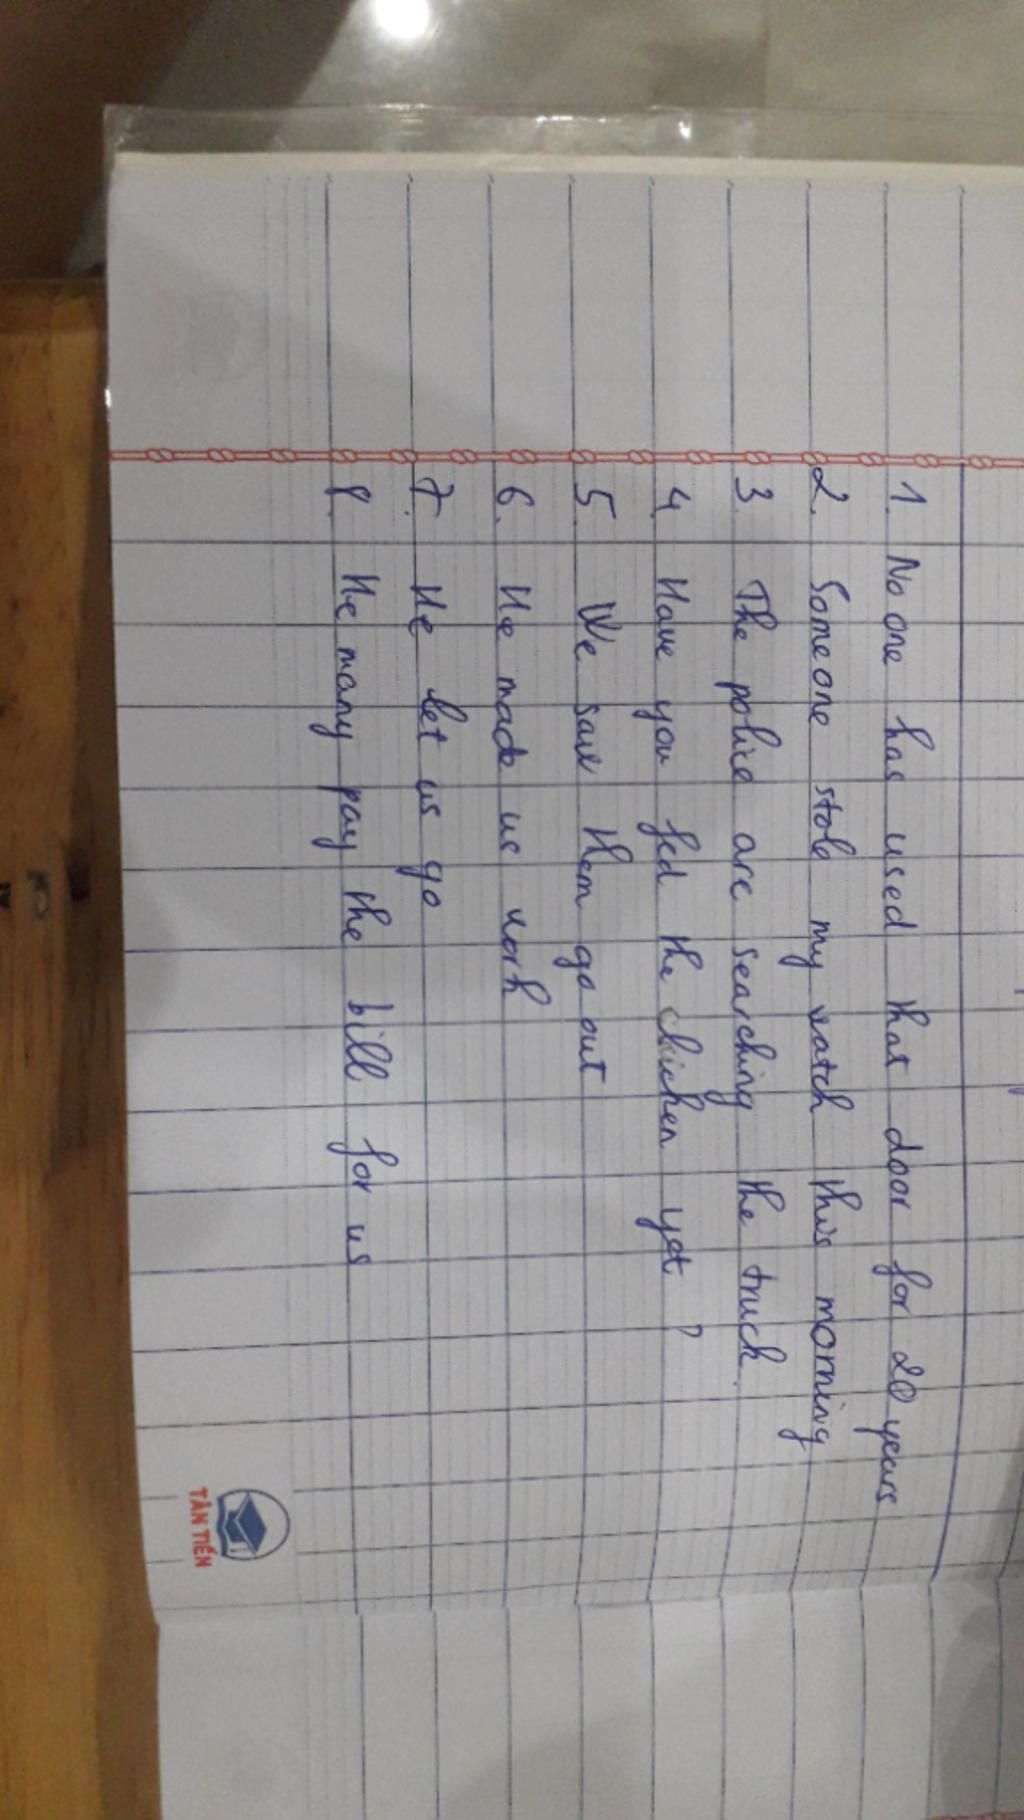 1. No one has used that door for 20 years
2. Someone stole my watch this morning
3. The police are searching the truck.
4. Have you fed the chicken yet ?
5. We saw them go out
6. He made us work
7. He let us go
8. He many pay the bill for us
TÂN TIẾN